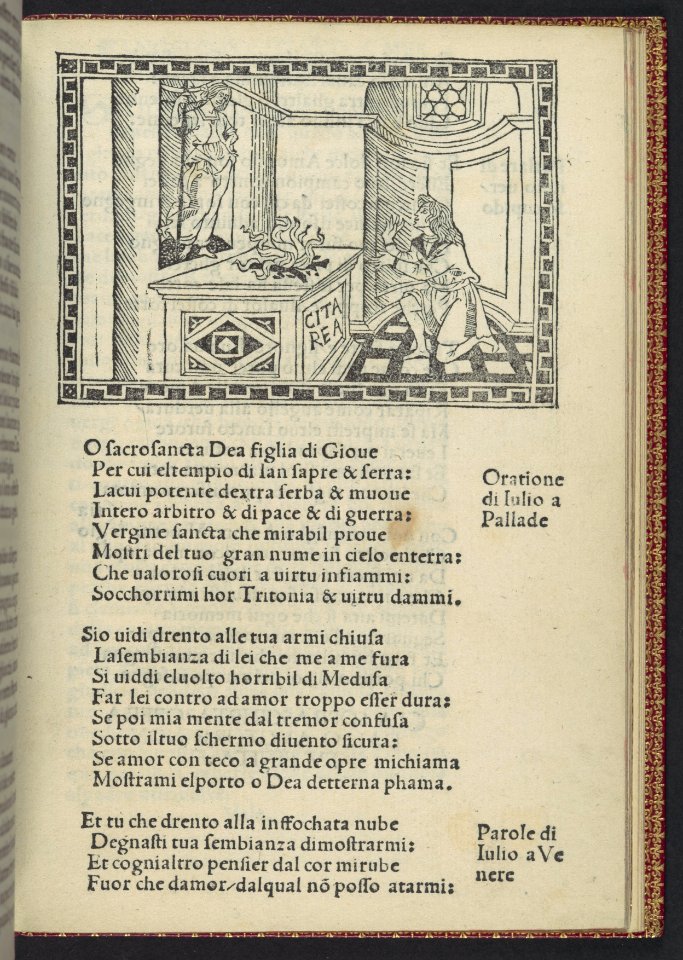 CITA
REA
O sacrosancta Dea figlia di Gioue
Per cui eltempio di Ian sapre & serra:
Lacui potente dextra serba & muoue
Intero arbitro & di pace & di guerra:
Vergine sancta che mirabil proue
Mostri del tuo gran nume in cielo enterra:
Che ualorosi cuori a uirtu infiammi:
Socchorrimi hor Tritonia & uirtu dammi.
Oratione
di Iulio a
Pallade
Sio uidi drento alle tua armi chiusa
Lasembianza di lei che me a me fura
Si uiddi eluolto horribil di Medusa
Far lei contro ad amor troppo esser dura:
Se poi mia mente dal tremor confusa
Sotto iltuo schermo diuento sicura:
Se amor con teco a grande opre michiama
Mostrami elporto o Dea detterna phama.
Et tu che drento alla inffochata nube
Degnasti tua sembianza dimostrarmi:
Et cognialtro pensier dal cor mirube
Fuor che damor/dalqual nõ posso atarmi:
Parole di
Iulio a Ve
nere